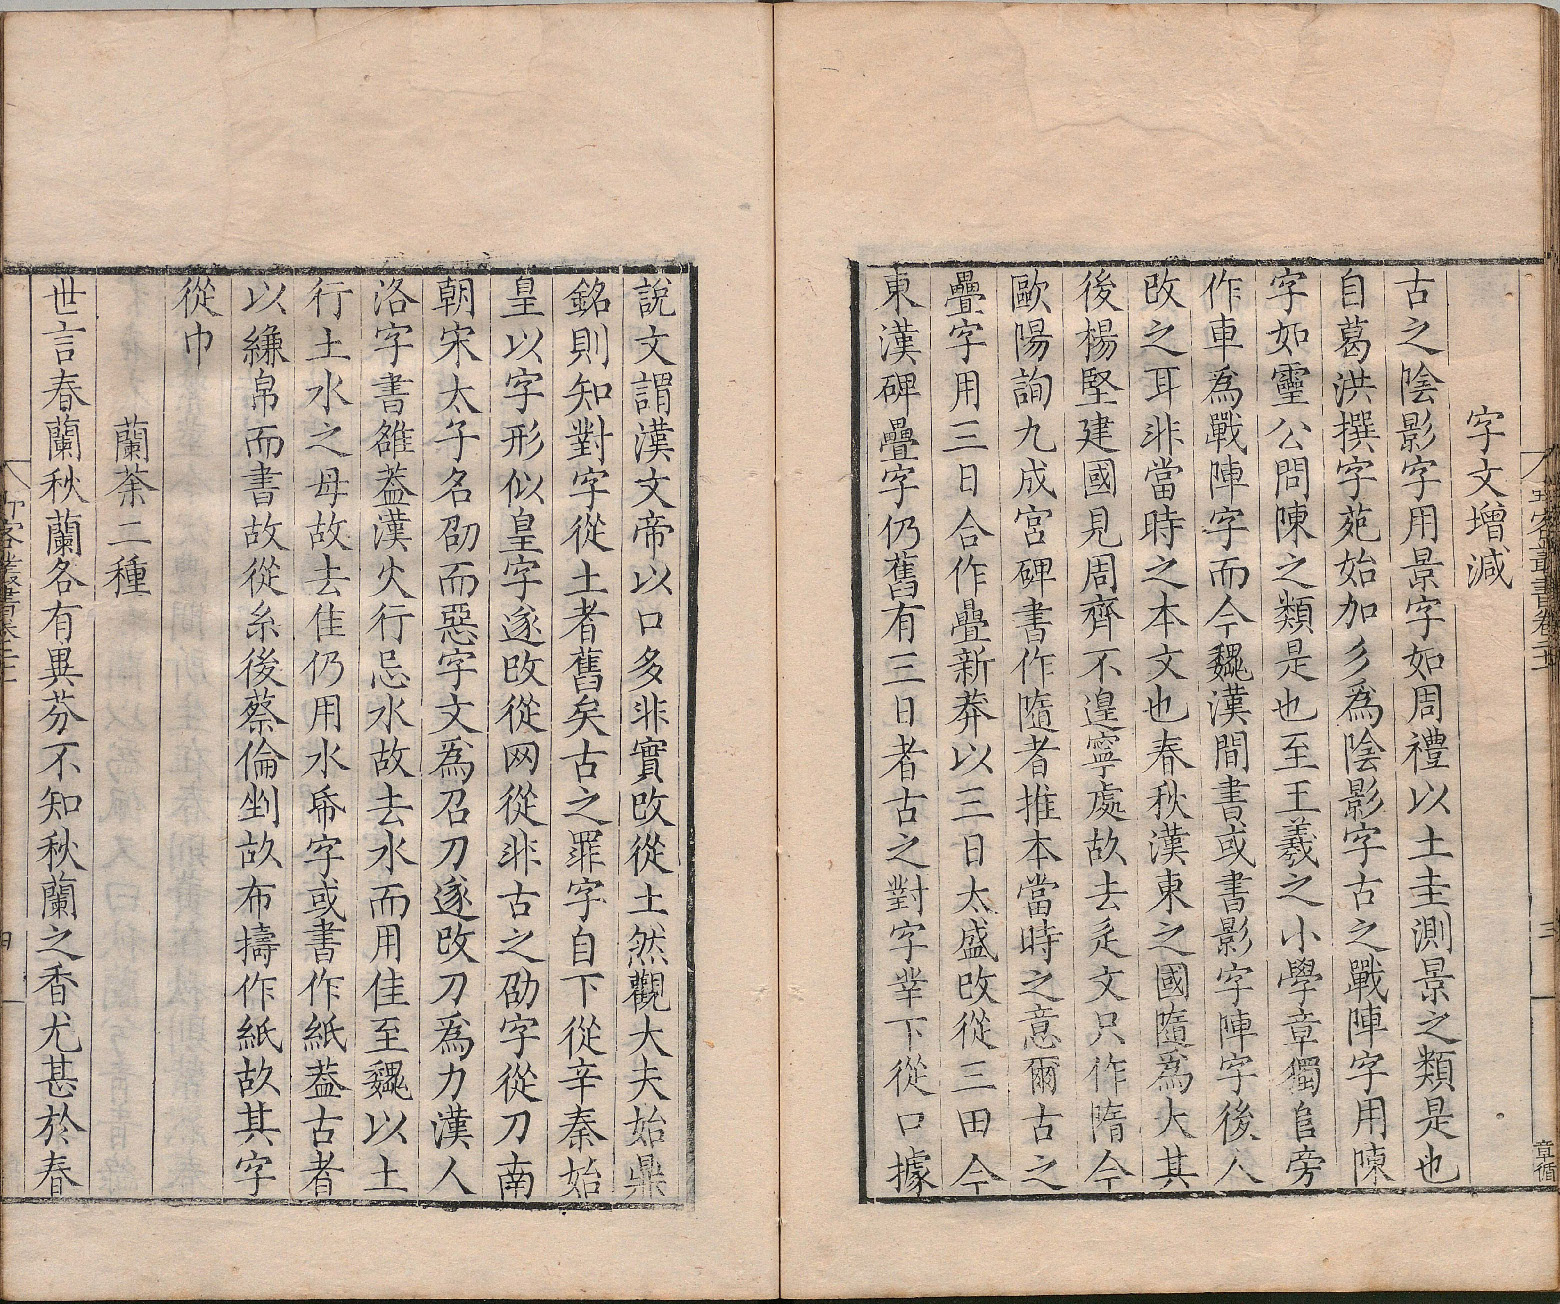 字文增減
古之陰影字用景字如周禮以土圭測景之類是也
自葛洪撰字苑始加彡爲陰影字古之戰陣字用陳
字如靈公問陳之類是也至王羲之小學章獨𨸏旁
作車爲戰陣字而今魏漢間書或書影字陣字後人
改之耳非當時之本文也春秋漢東之國隨爲大其
後楊堅建國見周齊不遑寧處故去辵文只作隋今
歐陽詢九成宮碑書作隨者推本當時之意爾古之
疊字用三日合作疊新莽以三日太盛改從三田今
東漢碑疊字仍舊有三日者古之對字丵下從口據
說文謂漢文帝以口多非實改從土然觀大夫始鼎
銘則知對字從土者舊矣古之罪字自下從辛秦始
皇以字形似皇字遂改從网從非古之劭字從刀南
朝宋太子名劭而惡字文爲召刀遂改刀爲力漢人
洛字書雒葢漢火行忌水故去水而用隹至魏以土
行土水之母故去隹仍用水帋字或書作紙葢古者
以縑帛而書故從糸後蔡倫剉故布擣作紙故其字
從巾
蘭荼二種
世言春蘭秋蘭各有異芬不知秋蘭之香尤甚於春
三
章循